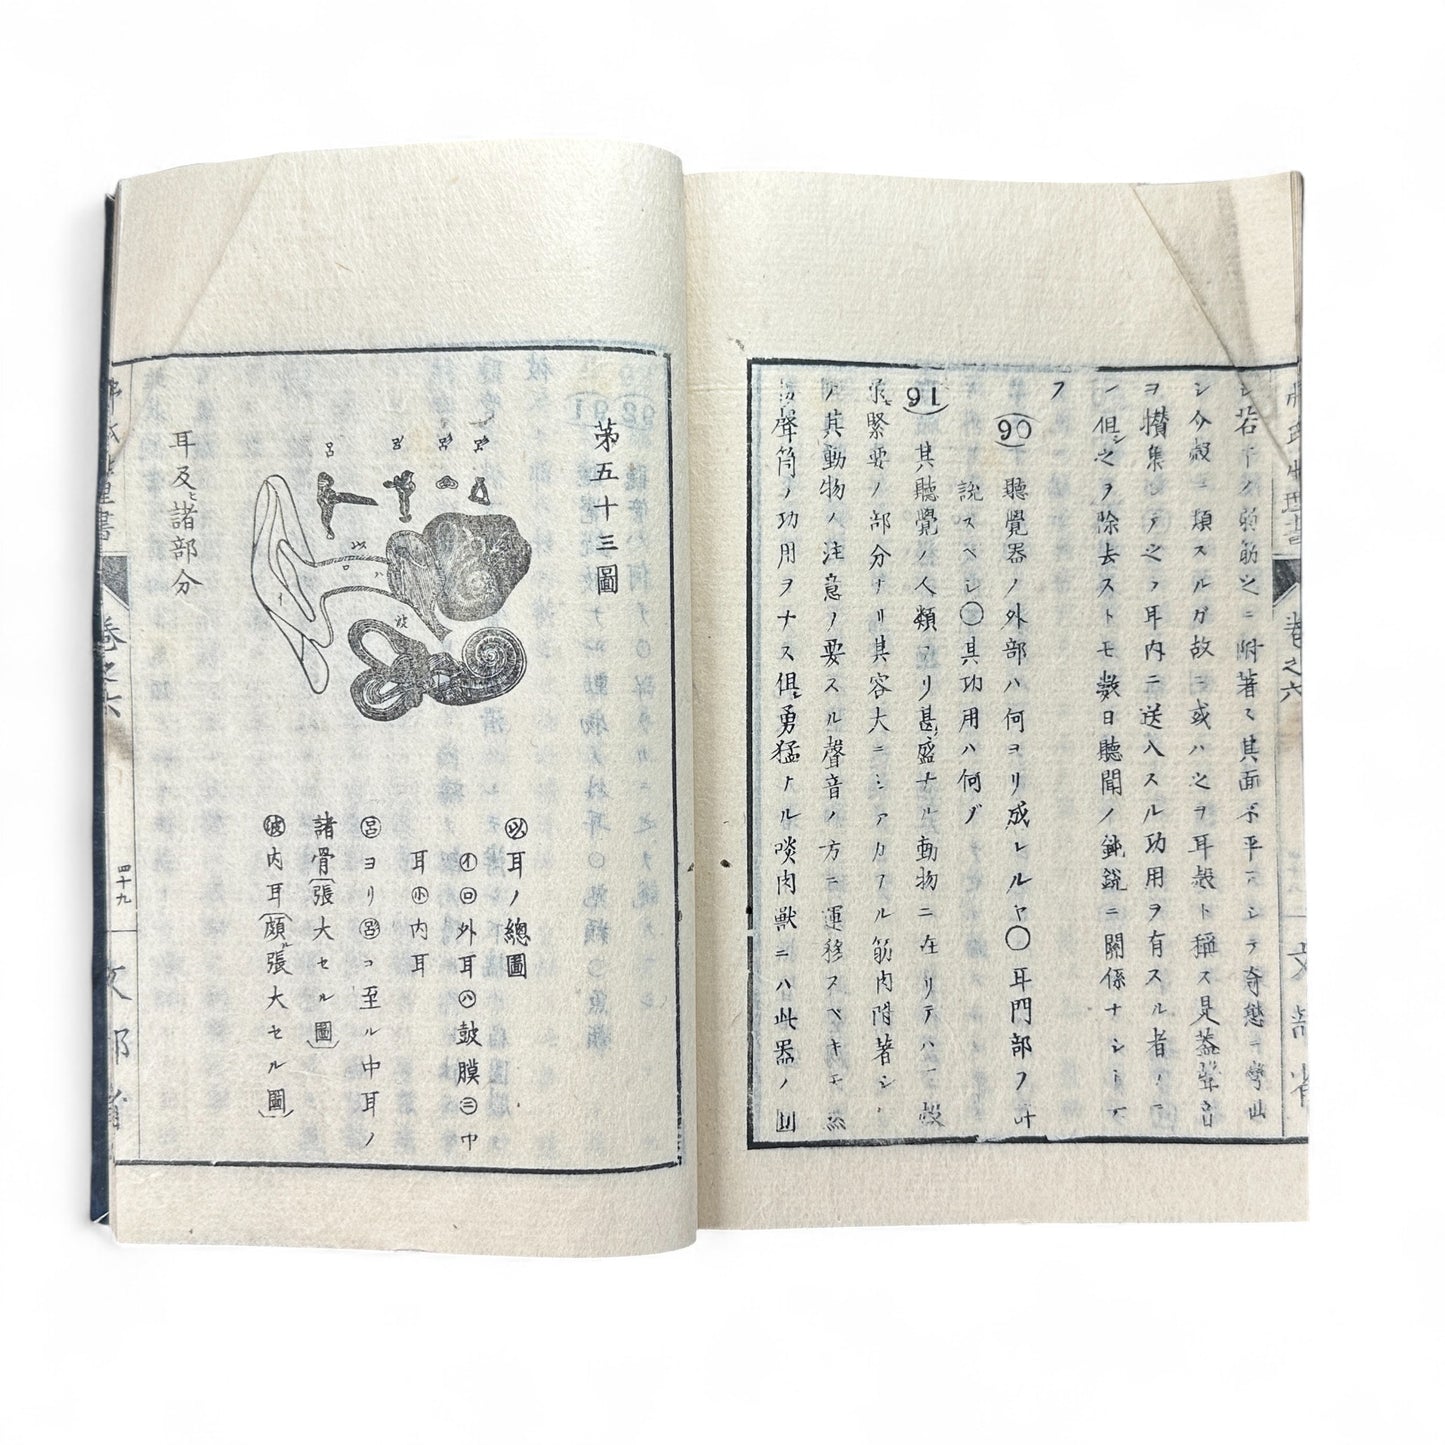 シ若干ノ弱筋之ニ附著シ其面不平ニシテ奇態ニ彎曲
シ介殻ニ類スルガ故ニ或ハ之ヲ耳殻ト稱ス是蓋聲音
ヲ攅集シテ之ヲ耳内ニ送入スル功用ヲ有スル者ノ
但之ヲ除去ストモ數日聽聞ノ鈍銳ニ關係ナシ
フ
90 聽覺器ノ外部ハ何ヨリ成レルヤ〇耳門部ヲ
說スベシ〇其功用ハ何ゾ
91 其聽覺ノ人類ヨリ甚盛ナル動物ニ在リテハ 殼
緊要ノ部分ナリ其容大ニシテ 筋肉附著シ
其動物ノ注意ノ要スル聲音ノ方ニ運移スベキ
聲筒ノ功用ヲナス但勇猛ナル啖肉獸ニハ此器ノ凹
卷之六
文部省
第五十三圖
耳及諸部分
㋑耳ノ總圖
㋑㋺外耳㋩鼓膜㊁中
耳㋭内耳
㊂ヨリ㊂ニ至ル中耳ノ
諸骨〔張大セル圖〕
㊇内耳〔頗張大セル圖〕
物理書
卷之六
四十九
文部省